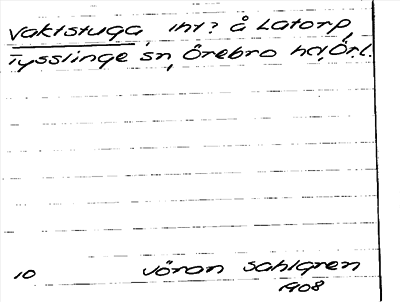 Vaktstuga, iht? å Latorp,
Tysslinge sn, Örebro hd, Örl.
10 Jöran Sahlgren
1908